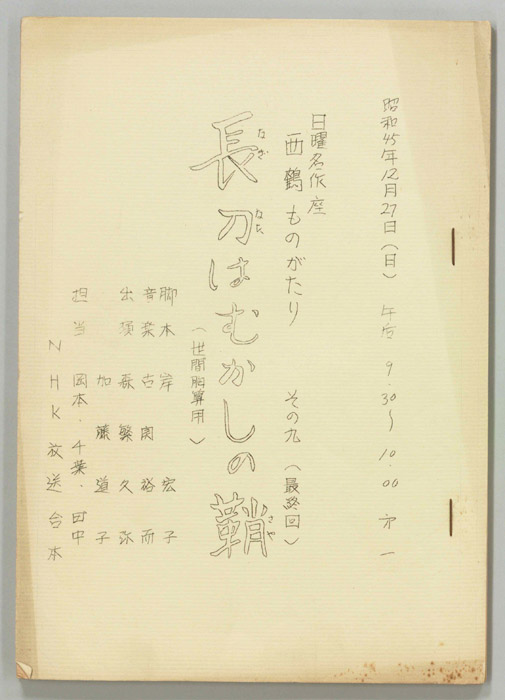 昭和45年12月27日（日） 午后 9.30〜10.00 オ一
日曜名作座
西鶴ものがたり その九（最終回）
長刀はむかしの鞘
なぎなた
さや
（世間胸算用）
脚本 岸 宏子
音楽 古関裕而
出演 森繁久弥
加藤道子
担当 岡本・千葉・田中
NHK放送台本